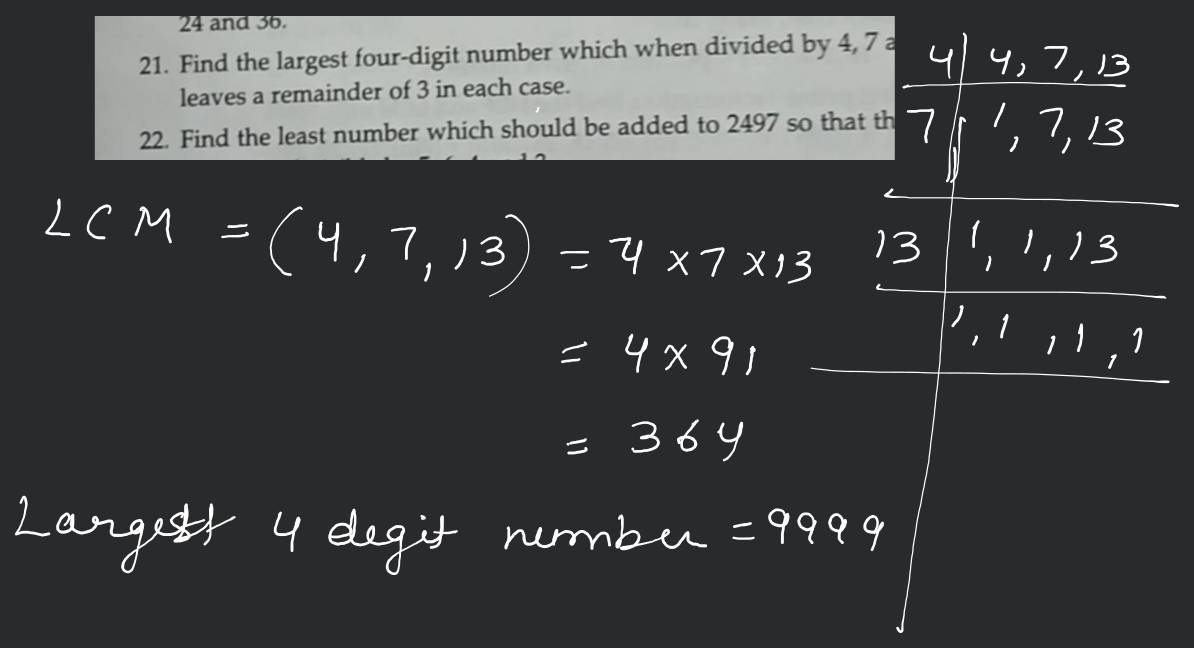 24 and 36.
21. Find the largest four-digit number which when divided by 4, 7 a
leaves a remainder of 3 in each case.
22. Find the least number which should be added to 2497 so that th
4 | 4, 7, 13
7 | 1, 7, 13
13 | 1, 1, 13
1, 1, 1, 1
LCM = (4, 7, 13) = 4 x 7 x 13
= 4 x 91
= 364
Largest 4 degit number = 9999